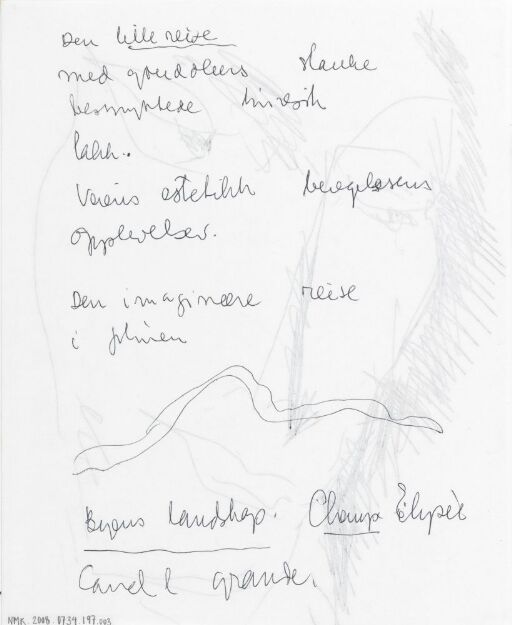 Den lille reise
med gondolens slanke
besmykkede kinesisk
lakk.
Vareris estetikk bevegelsens
opplevelser.
Den imaginære reise
i filmen
Byens landskap. Champ Élysée
Canal l grande.
NMK. 2008. 0734. 197. 003